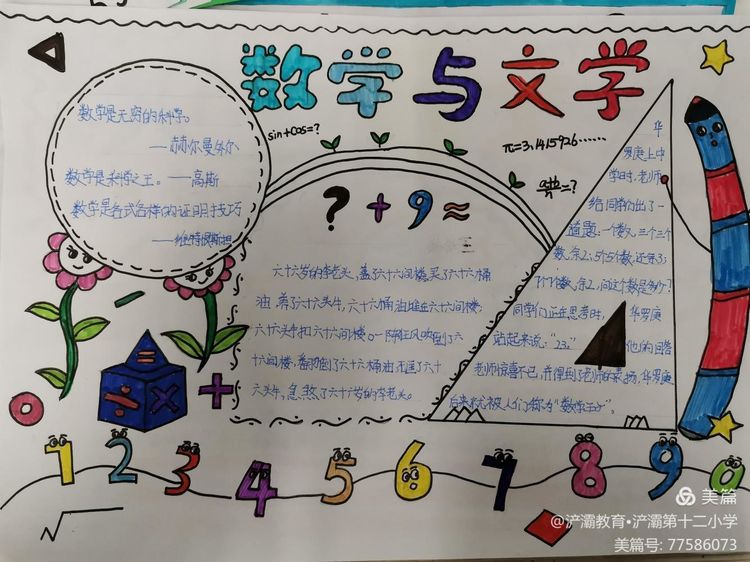 数学与文学
数学是无穷的科学。
——赫尔曼外尔
数学是科学之王。——高斯
数学是各式各样的证明技巧
——维特根斯坦
sin+cos=?
π=3.1415926……
a+b/n=?
?+9=
六十六岁的李老头,盖了六十六间楼,买了六十六桶
油,养了六十六头牛,六十六桶油堆在六十六间楼;
六十六头牛扣六十六间楼。一阵狂风吹倒了六
十六间楼,翻倒了六十六桶油,
六头牛,急煞了六十六岁的李老头。
华
罗庚上中
学时,老师
给同学们出了一
道题:一个数,三个三个
数,余2;5个5个数,还余3;
7个7个数,余2,问这个数是多少?
同学们正在思考时,华罗庚
站起来说:“23。”他的回答
老师惊喜不已,并得到了老师的表扬,华罗庚
后来就被人们称为“数学王子”。
=
÷ ×
+
1 2 3 4 5 6 7 8 9 0
美篇
@浐灞教育•浐灞第十二小学
美篇号: 77586073